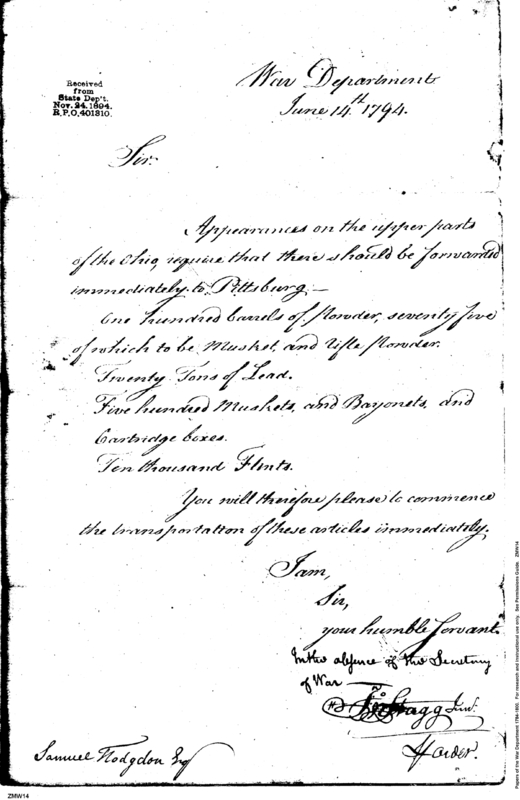 Received
from
State Dep't.
Nov. 24. 1894.
R.P.O. 401310.
War Department
June 14th 1794.
Sir.
Appearances on the upper parts
of the Ohio, require that there should be forwarded
immediately to Pittsburg —
One hundred barrels of Powder, seventy five
of which to be Musket, and Rifle Powder.
Twenty Tons of Lead.
Five hundred Muskets, and Bayonets, and
Cartridge boxes.
Ten thousand Flints.
You will therefore please to commence
the transportation of these articles immediately.
I am,
Sir,
your humble Servant.
In the absence of the Secretary
of War —
Stagg Junr.
Samuel Hodgdon Esq
ZMW14
Papers of the War Department 1784-1800. For research and instructional use only. See Permissions Guide. ZMW14